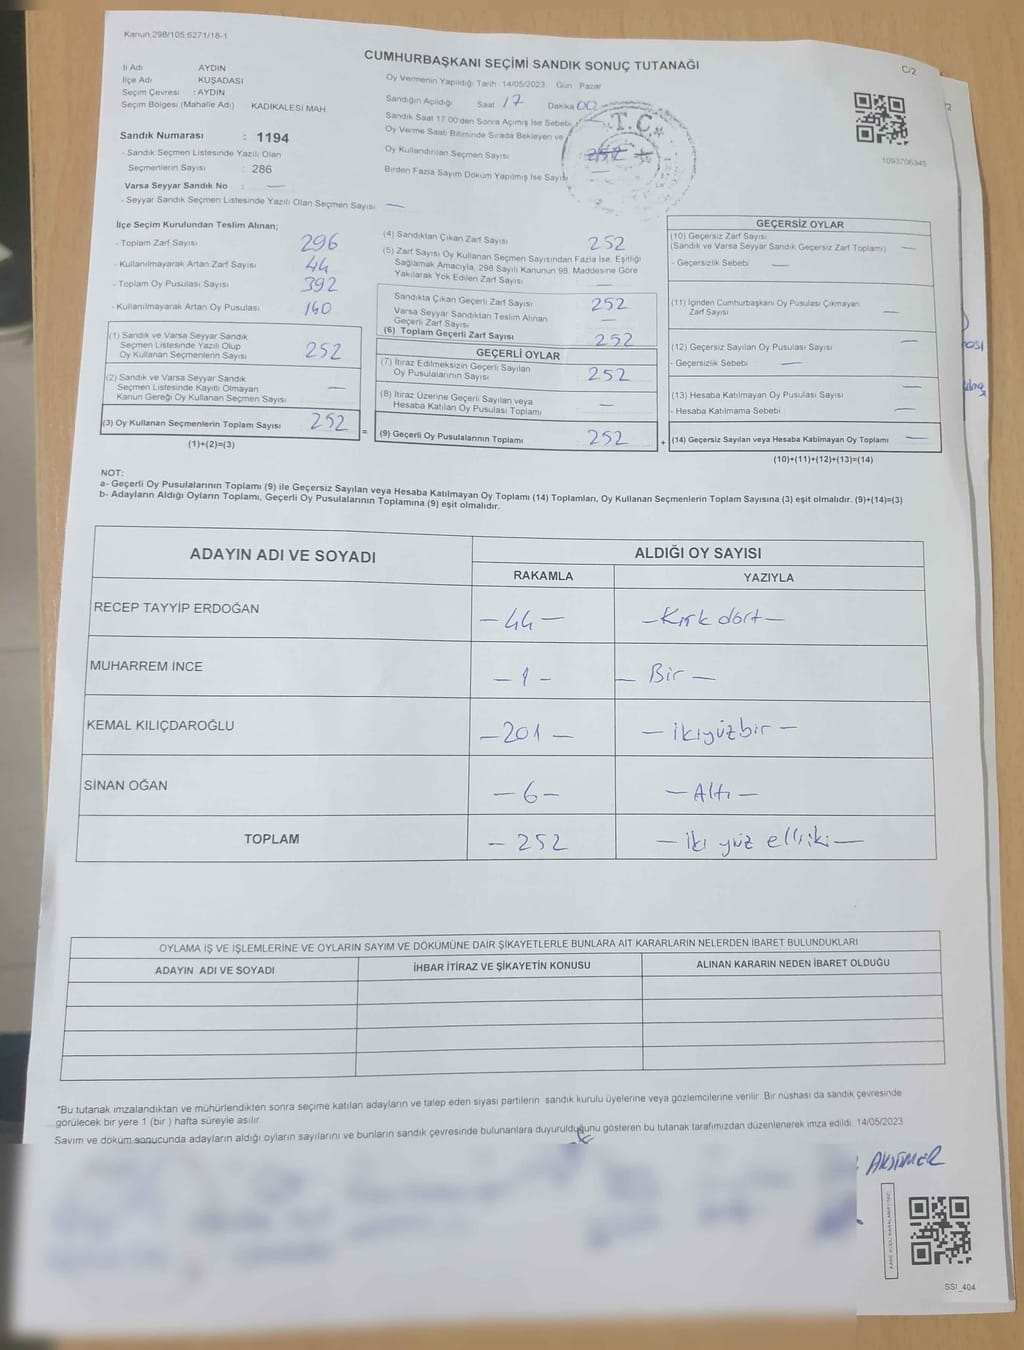 Kanun:298/105:6271/18-1
CUMHURBAŞKANI SEÇİMİ SANDIK SONUÇ TUTANAĞI
C/2
İl Adı AYDIN
İlçe Adı KUŞADASI
Seçim Çevresi : AYDIN
Seçim Bölgesi (Mahalle Adı) KADIKALESİ MAH
Sandık Numarası : 1194
- Sandık Seçmen Listesinde Yazılı Olan
Seçmenlerin Sayısı : 286
Varsa Seyyar Sandık No : —
- Seyyar Sandık Seçmen Listesinde Yazılı Olan Seçmen Sayısı —
Oy Vermenin Yapıldığı Tarih : 14/05/2023 Gün : Pazar
Sandığın Açıldığı Saat 17 Dakika 00
Sandık Saat 17:00'den Sonra Açılmış İse Sebebi
Oy Verme Saati Bitiminde Sırada Bekleyen ve
Oy Kullandırılan Seçmen Sayısı
Birden Fazla Sayım Döküm Yapılmış İse Sayısı
T.C.
1093706345
İlçe Seçim Kurulundan Teslim Alınan;
- Toplam Zarf Sayısı 296
- Kullanılmayarak Artan Zarf Sayısı 44
- Toplam Oy Pusulası Sayısı 392
- Kullanılmayarak Artan Oy Pusulası 140
(1) Sandık ve Varsa Seyyar Sandık
Seçmen Listesinde Yazılı Olup
Oy Kullanan Seçmenlerin Sayısı 252
(2) Sandık ve Varsa Seyyar Sandık
Seçmen Listesinde Kayıtlı Olmayan
Kanun Gereği Oy Kullanan Seçmen Sayısı —
(3) Oy Kullanan Seçmenlerin Toplam Sayısı 252
(1)+(2)=(3)
(4) Sandıktan Çıkan Zarf Sayısı 252
(5) Zarf Sayısı Oy Kullanan Seçmen Sayısından Fazla İse, Eşitliği
Sağlamak Amacıyla, 298 Sayılı Kanunun 98. Maddesine Göre
Yakılarak Yok Edilen Zarf Sayısı —
Sandıkta Çıkan Geçerli Zarf Sayısı 252
Varsa Seyyar Sandıktan Teslim Alınan
Geçerli Zarf Sayısı —
(6) Toplam Geçerli Zarf Sayısı 252
GEÇERLİ OYLAR
(7) İtiraz Edilmeksizin Geçerli Sayılan
Oy Pusulalarının Sayısı 252
(8) İtiraz Üzerine Geçerli Sayılan veya
Hesaba Katılan Oy Pusulası Toplamı —
= (9) Geçerli Oy Pusulalarının Toplamı 252
GEÇERSİZ OYLAR
(10) Geçersiz Zarf Sayısı
(Sandık ve Varsa Seyyar Sandık Geçersiz Zarf Toplamı) —
- Geçersizlik Sebebi —
(11) İçinden Cumhurbaşkanı Oy Pusulası Çıkmayan
Zarf Sayısı —
(12) Geçersiz Sayılan Oy Pusulası Sayısı —
- Geçersizlik Sebebi —
(13) Hesaba Katılmayan Oy Pusulası Sayısı —
- Hesaba Katılmama Sebebi —
+ (14) Geçersiz Sayılan veya Hesaba Katılmayan Oy Toplamı —
(10)+(11)+(12)+(13)=(14)
NOT:
a- Geçerli Oy Pusulalarının Toplamı (9) ile Geçersiz Sayılan veya Hesaba Katılmayan Oy Toplamı (14) Toplamları, Oy Kullanan Seçmenlerin Toplam Sayısına (3) eşit olmalıdır. (9)+(14)=(3)
b- Adayların Aldığı Oyların Toplamı, Geçerli Oy Pusulalarının Toplamına (9) eşit olmalıdır.
ADAYIN ADI VE SOYADI ALDIĞI OY SAYISI
RAKAMLA YAZIYLA
RECEP TAYYİP ERDOĞAN —44— —Kırk dört—
MUHARREM İNCE —1— —Bir—
KEMAL KILIÇDAROĞLU —201— —ikiyüzbir—
SİNAN OĞAN —6— —Altı—
TOPLAM —252 —İki yüz elliiki—
OYLAMA İŞ VE İŞLEMLERİNE VE OYLARIN SAYIM VE DÖKÜMÜNE DAİR ŞİKAYETLERLE BUNLARA AİT KARARLARIN NELERDEN İBARET BULUNDUKLARI
ADAYIN ADI VE SOYADI İHBAR İTİRAZ VE ŞİKAYETİN KONUSU ALINAN KARARIN NEDEN İBARET OLDUĞU
*Bu tutanak imzalandıktan ve mühürlendikten sonra seçime katılan adayların ve talep eden siyasi partilerin sandık kurulu üyelerine veya gözlemcilerine verilir. Bir nüshası da sandık çevresinde
görülecek bir yere 1 (bir) hafta süreyle asılır.
Sayım ve döküm sonucunda adayların aldığı oyların sayılarını ve bunların sandık çevresinde bulunanlara duyurulduğunu gösteren bu tutanak tarafımızdan düzenlenerek imza edildi. 14/05/2023
SSI_404